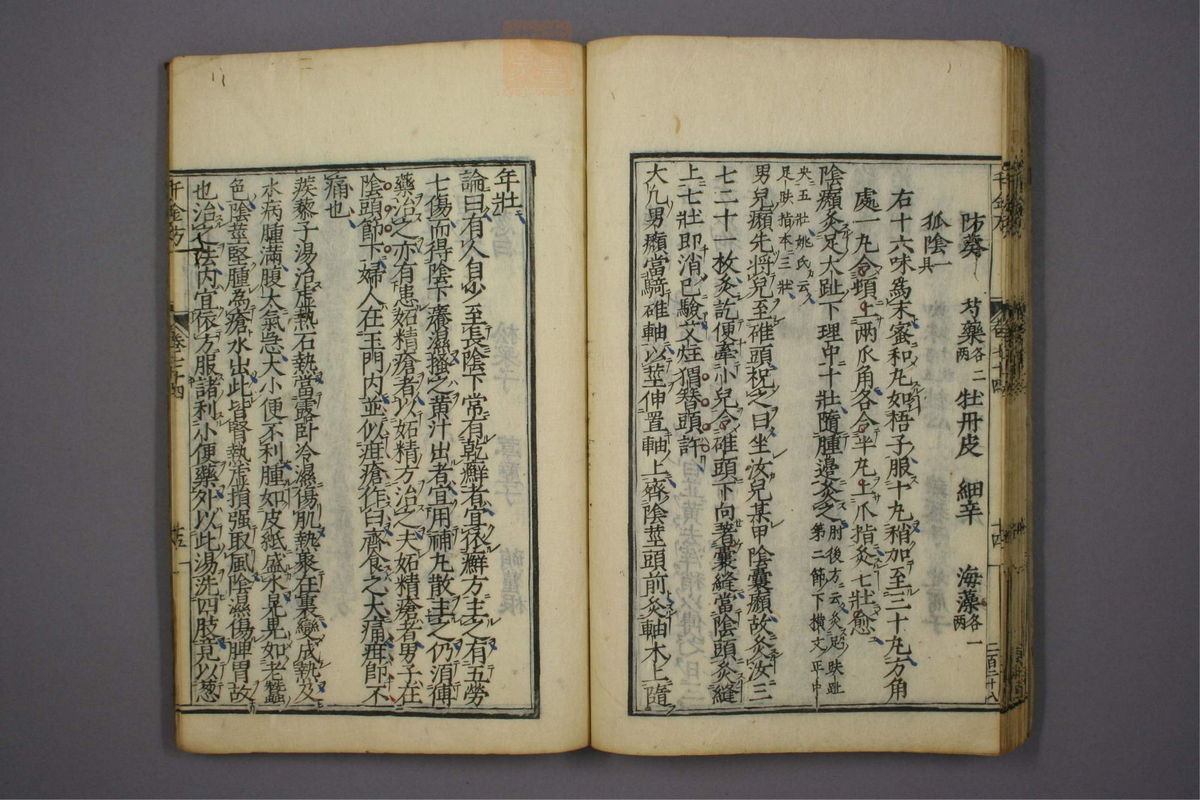 防葵 芍藥各二兩 牡丹皮 細辛 海藻各一兩
狐陰一具
右十六味爲末蜜和丸如梧子服十丸稍加至三十丸方角
處一丸令頓上兩爪角各令半丸上爪指灸七壯愈
陰㿗灸足大趾下理中十壯隨腫邊灸之肘後方云灸足大趾第二節下橫文正中
央五壯姚氏云足大指本三壯
男兒㿗先將兒至碓頭祝之曰坐汝兒某甲陰囊㿗故灸汝三
七二十一枚灸訖便牽小兒令碓頭下向著囊縫當陰頭灸縫
上七壯即消已驗艾炷㨩簪頭許
大凡男㿗當騎碓軸以莖伸置軸上齊陰莖頭前灸軸木上隨
年壯
論曰有人自少至長陰下常有乾癬者宜依癬方主之有五勞
七傷而得陰下癢濕搔之黃汁出者宜用補丸散主之仍須傅
藥治之亦有患妬精瘡者以妬精方治之夫妬精瘡者男子在
陰頭節下婦人在玉門内並似疳瘡作臼齊食之大痛疳即不
痛也
蒺藜子湯治虚熱石熱當露臥冷濕傷肌熱聚在裏變成熱及
水病腫滿腹大氣急大小便不利腫如皮紙盛水晃晃如老蠶
色陰莖堅腫爲瘡水出此皆腎熱虚損强取風陰濕傷脾胃故
也治之法内宜依方服諸利小便藥外以此湯洗四肢竟以葱
千金方 卷七十四 十四
千金方 卷七十四 十五